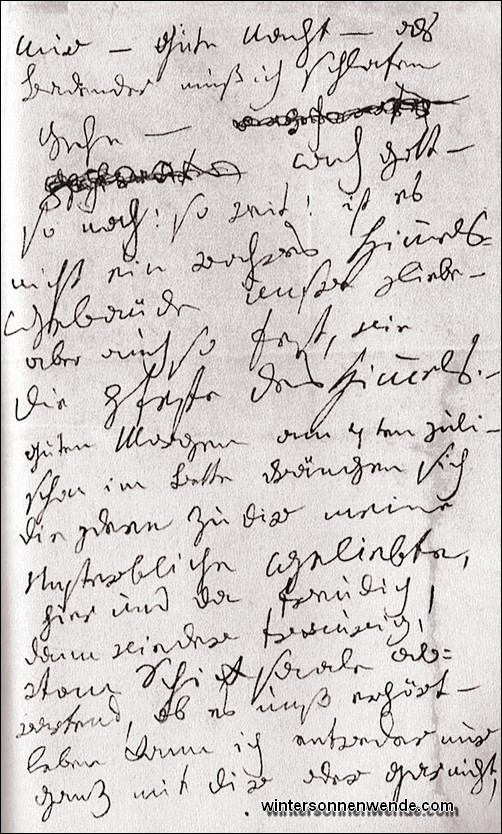 mir — gute Nacht — als
Badender muß ich schlafen
gehn —
ach gott —
so nah! so weit! ist es
nicht ein wahres Himmels=
Gebäude unsre Liebe —
aber auch so fest, wie
die Veste des Himmels. —
guten Morgen am 7ten juli —
schon im Bette drängen sich
die Ideen zu dir meine
Unsterbliche Geliebte,
hier und da freudig,
dann wieder traurig,
vom Schicksaale ab=
wartend, ob es unß erhört —
leben kann ich entweder nur
ganz mit dir oder gar nicht,
wintersonnenwende.com